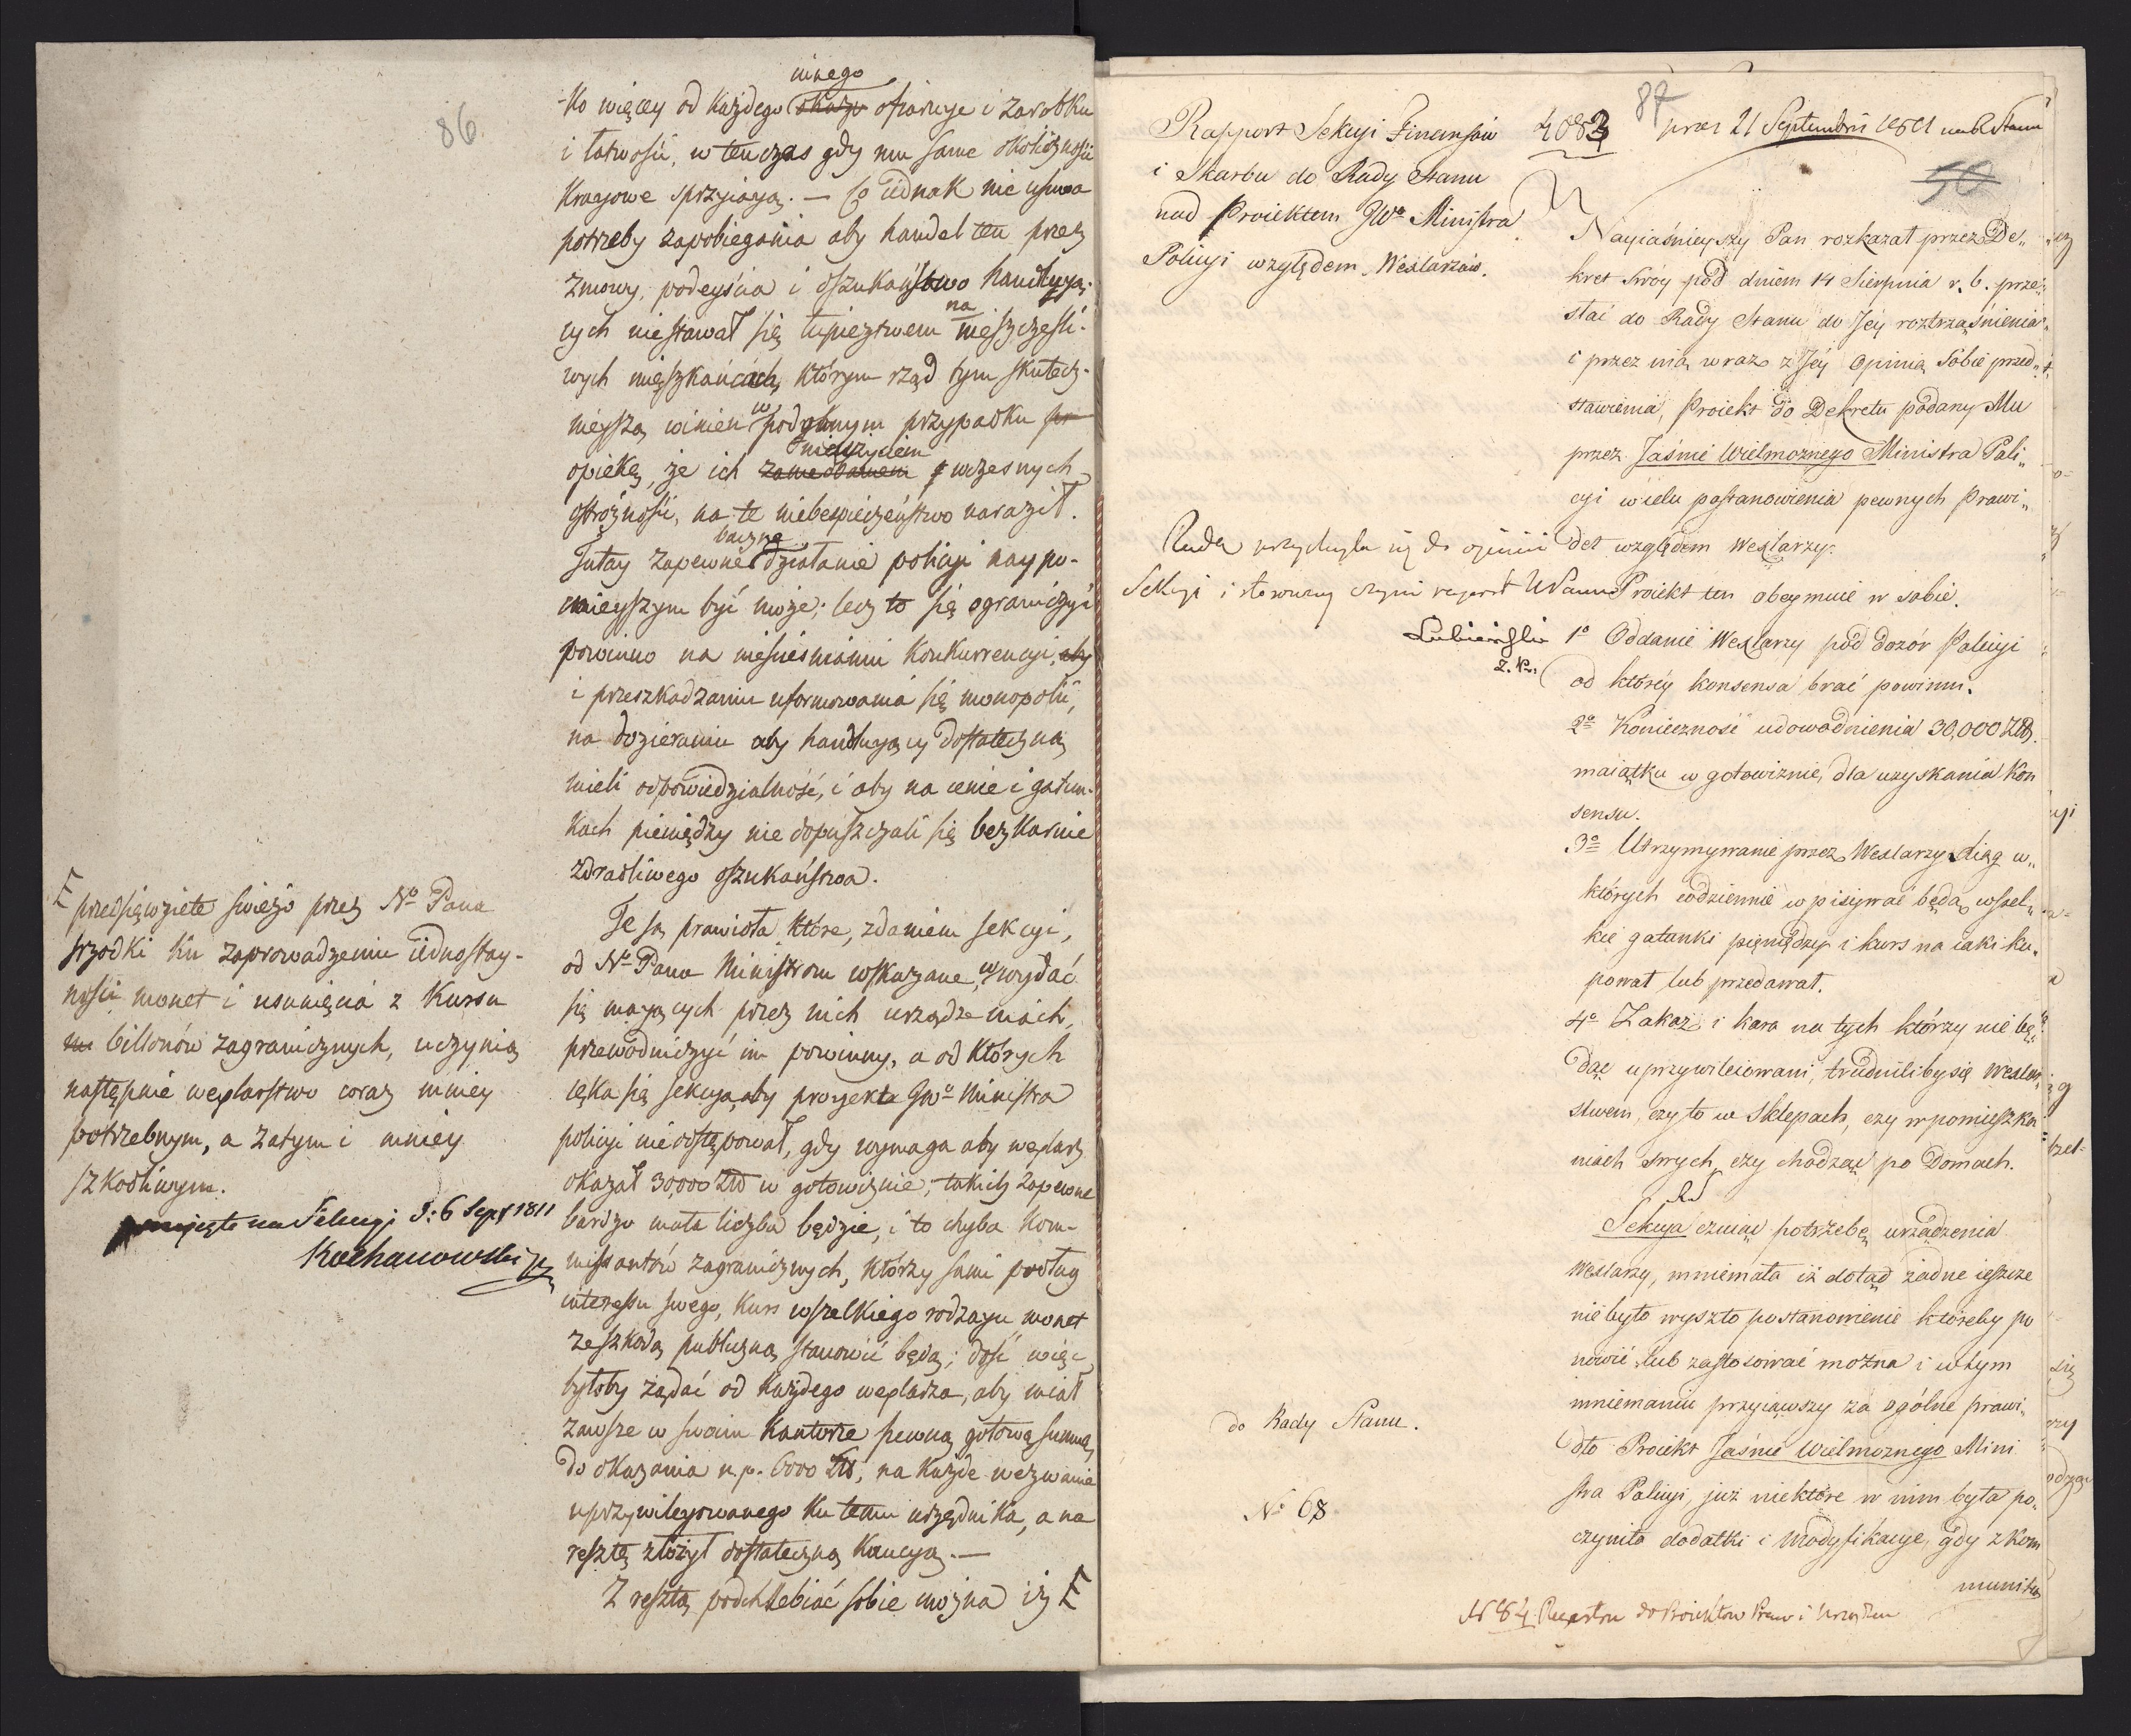 86.
innego
-ko więcey od każdego okazu ofiaruje i zarobku
i łatwości, w ten czas gdy mu same okoliczności
krajowe sprzyiają. — Co iednak nie usuwa
potrzeby zapobiegania aby handel ten przez
zmowy, podeyścia i oszukaństwo handlują-
na
cych niestawał się łupieztwem nieszczęśli-
wych mięszkańcach, którym rząd tym skutecz-
w
nieyszą winien podobnym przypadku pr
nieużyciem
opiekę, że ich zaniedbaniem wczesnych
ostrożności, na te niebespieczeństwo naraził.
baczne
Tutay zapewne działanie policyi naypo-
mnieyszym być może; lecz to się ograniczyć
powinno na nieścieśnianiu konkurrencyi, aby
i przeszkadzaniu uformowania się monopolii,
na dozieraniu aby handlujący dostateczną
mieli odpowiedzialność, i aby na cenie i gatun-
kach pieniędzy nie dopuszczali się bezkarnie
zdradliwego oszukaństwa.
Te są prawidła które, zdaniem sekcyi,
od No Pana Ministrom wskazane, w wydać
się mających przez nich urządzeniach,
przewodniczyć im powinny, a od których
lęka się sekcya, aby proyekt JWo Ministra
policyi nie odstępował, gdy wymaga aby wexlarz
okazał 30,000 Złł w gotowiznie; takich zapewne
bardzo mała liczba będzie, i to chyba kom-
missantów zagranicznych, którzy sami podług
interessu swego, kurs wszelkiego rodzaju monet
ze szkodą publiczną stanowić będą; dość więc
byłoby żądać od każdego wexlarza, aby miał
zawsze w swoim kantorze pewną gotową summę,
do okazania n.p. 6000 Złł, na każde wezwanie
uprzywileyowanego ku temu urzędnika, a na
resztę złożył dostateczną kaucyą. —
Z resztą podchlebiać sobie można iż E
E przedsięwzięte świeżo przez No Pana
srzodki ku zaprowadzeniu iednostay-
ności monet i usunięcia z kursu
na billonów zagranicznych, uczynią
następnie wexlarstwo coraz mniey
potrzebnym, a zatym i mniey
szkodliwym.
przyięte na Sekcyi d: 6 Sept 1811
Kochanowski
Rapport Sekcyi Finansów
i Skarbu do Rady Stanu
nad Proiektem JWo Ministra
Policyi względem Wexlarzów.
4083
87
prez 21 Septembris 1811 na R. Stanu
50
Nayiaśnieyszy Pan rozkazał przez De„
kret swóy pod dniem 14 Sierpnia r. b. prze„
słać do Rady Stanu do Jey roztrząśnienia
i przez nią wraz z Jey Opinią Sobie przed„
stawienia, Proiekt do Dekretu podany Mu
przez Jaśnie Wielmożnego Ministra Poli„
cyi w celu postanowienia pewnych Prawi„
deł względem Wexlarzy.
Rada przychyla się do opinii
Sekcyi i stosowny czyni raport NPanu
Lubieński
Z. Pr.
Proiekt ten obeymuie w sobie.
1o Oddanie Wexlarzy pod dozór Policyi
od którey konsensa brać powinni.
2o Konieczność udowodnienia 30,000 Złł.
maiątku w gotowiznie, dla uzyskania Kon
sensu.
3o Utrzymywanie przez Wexlarzy xiąg w„
których codziennie wpisywać będą wszel„
kie gatunki pieniędzy i kurs na iaki ku„
pował lub przedawał.
4o Zakaz i kara na tych którzy nie bę„
dąc uprzywileiowani, trudniliby się Wexlar
stwem, czy to w Sklepach, czy w pomieszka
niach swych, czy chodząc po Domach.
Sekcya czuiąc potrzebę urządzenia
Wexlarzy, mniemała iż dotąd żadne ieszcze
nie było wyszło postanowienie któreby po
nowić lub zastosować można i w tym
mniemaniu przyiąwszy za ogólne prawi„
dło Proiekt Jaśnie Wielmożnego Mini
stra Policyi, już niektóre w nim była po„
czyniła dodatki i Modyfikacye, gdy z kom
muniko
do Rady Stanu.
No 68
N 84 Repertor do Proiektow Praw i Urządzeń